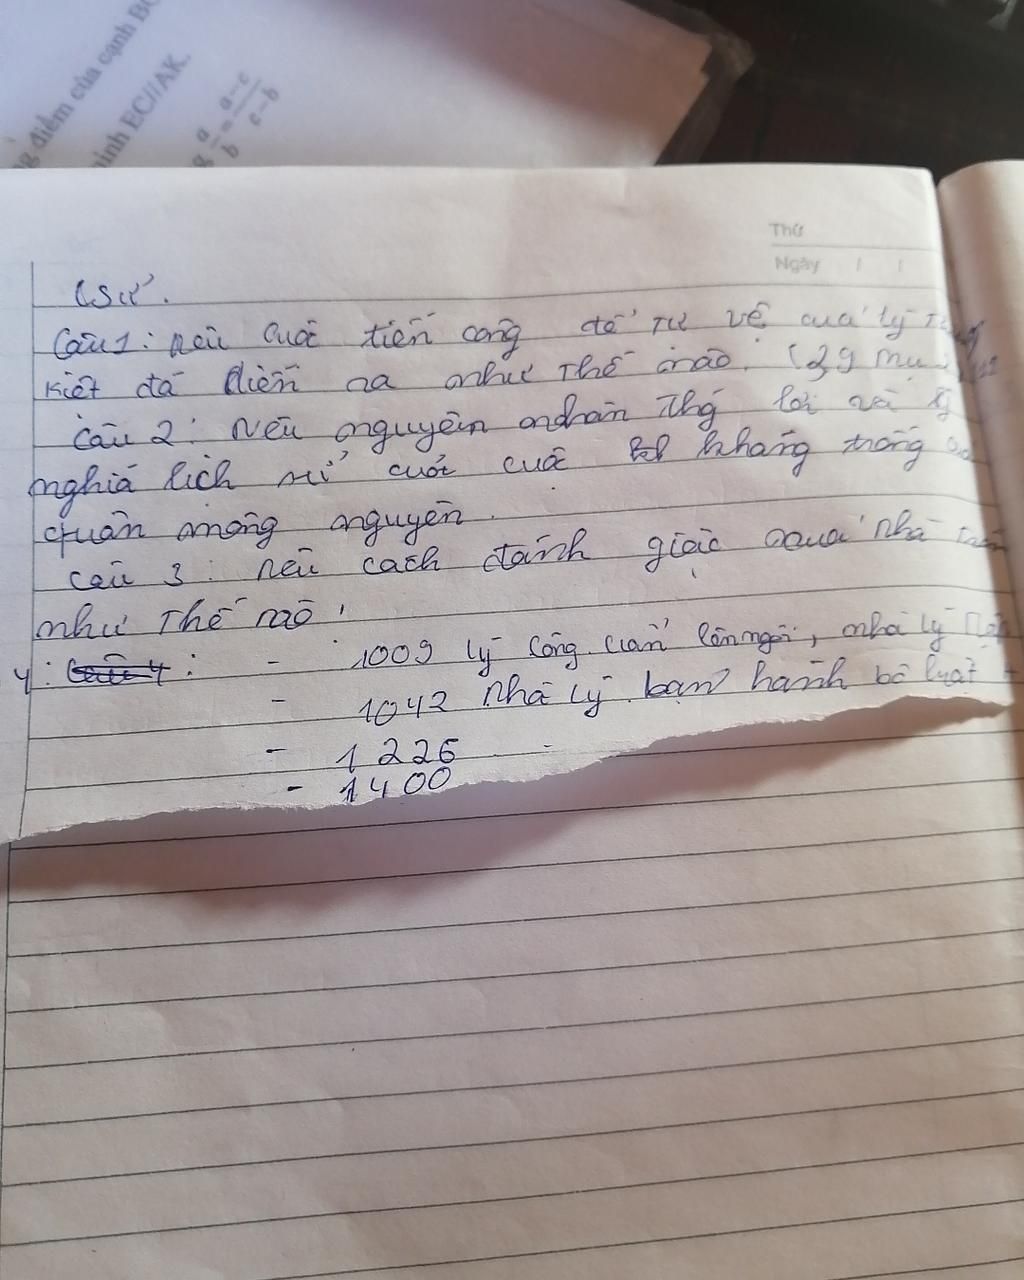 g điểm của cạnh BC
minh EC//AK.
a/b = a-c/c-b
Thứ
Ngày / /
Sử.
Câu 1: nêu cuộc tiến công để tự vệ của lý
kiệt đã diễn ra như thế nào. (29 mụ
Câu 2: Nêu nguyên nhân thắ lợi và ý
nghĩa lịch sử cuới cuộc kháng trống
quân mông nguyên.
Câu 3: nêu cách đánh giặc của nhà trần
như thế nào.
4: - 1009 lý công uẩn lên ngôi, nhà lý
- 1042 nhà lý ban hành bộ luật
- 1226
- 1400